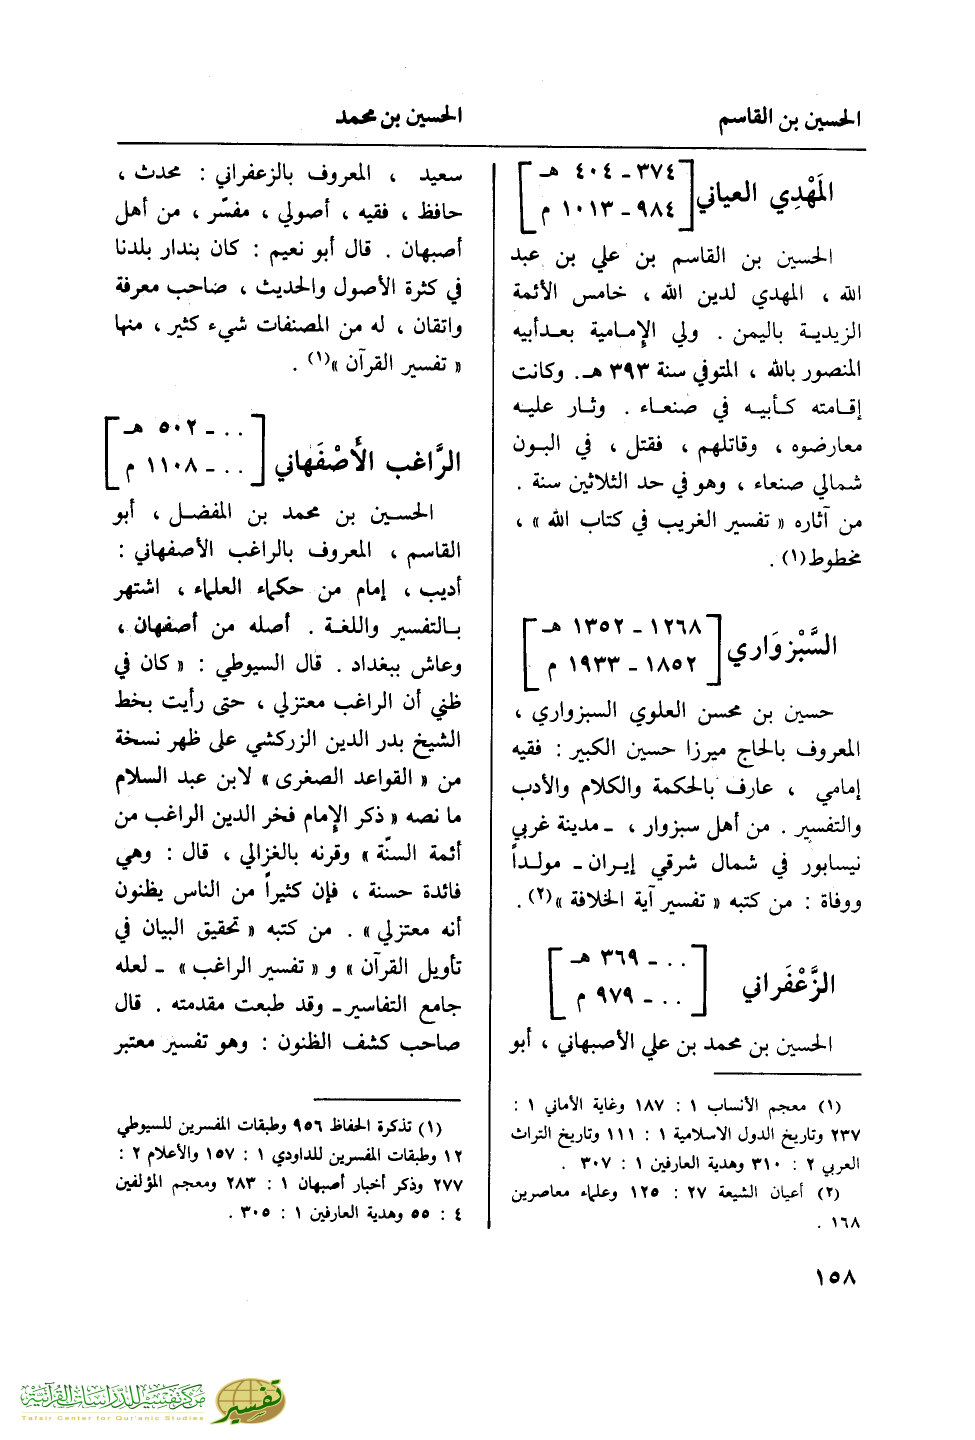 الحسين بن القاسم
الحسين بن محمد
المَهْدِي العياني
٣٧٤ - ٤٠٤ هـ
٩٨٤ - ١٠١٣ م
الحسين بن القاسم بن علي بن عبد
الله ، المهدي لدين الله ، خامس الأئمة
الزيدية باليمن . ولي الإمامية بعدأبيه
المنصور بالله ، المتوفي سنة ٣٩٣ هـ. وكانت
إقامته كأبيه في صنعاء . وثار عليه
معارضوه ، وقاتلهم ، فقتل ، في البون
شمالي صنعاء ، وهو في حد الثلاثين سنة .
من آثاره « تفسير الغريب في كتاب الله » ،
مخطوط(١) .
السَّبْزوَاري
١٢٦٨ - ١٣٥٢ هـ
١٨٥٢ - ١٩٣٣ م
حسين بن محسن العلوي السبزواري ،
المعروف بالحاج ميرزا حسين الكبير : فقيه
إمامي ، عارف بالحكمة والكلام والأدب
والتفسير . من أهل سبزوار ، - مدينة غربي
نيسابور في شمال شرقي إيران - مولداً
ووفاة : من كتبه « تفسير آية الخلافة »(٢) .
الزَّعْفَراني
.. - ٣٦٩ هـ
.. - ٩٧٩ م
الحسين بن محمد بن علي الأصبهاني ، أبو
(١) معجم الأنساب ١ : ١٨٧ وغاية الأماني ١ :
٢٣٧ وتاريخ الدول الاسلامية ١ : ١١١ وتاريخ التراث
العربي ٢ : ٣١٠ وهدية العارفين ١ : ٣٠٧ .
(٢) أعيان الشيعة ٢٧ : ١٢٥ وعلماء معاصرين
١٦٨ .
سعيد ، المعروف بالزعفراني : محدث ،
حافظ ، فقيه ، أصولي ، مفسّر ، من أهل
أصبهان . قال أبو نعيم : كان بندار بلدنا
في كثرة الأصول والحديث ، صاحب معرفة
واتقان ، له من المصنفات شيء كثير ، منها
« تفسير القرآن »(١) .
الرَّاغب الأَصْفَهاني
.. - ٥٠٢ هـ
.. - ١١٠٨ م
الحسين بن محمد بن المفضل ، أبو
القاسم ، المعروف بالراغب الأصفهاني :
أديب ، إمام من حكماء العلماء ، اشتهر
بالتفسير واللغة . أصله من أصفهان ،
وعاش ببغداد . قال السيوطي : « كان في
ظني أن الراغب معتزلي ، حتى رأيت بخط
الشيخ بدر الدين الزركشي على ظهر نسخة
من « القواعد الصغرى » لابن عبد السلام
ما نصه « ذكر الإمام فخر الدين الراغب من
أئمة السنّة » وقرنه بالغزالي ، قال : وهي
فائدة حسنة ، فإن كثيراً من الناس يظنون
أنه معتزلي » . من كتبه « تحقيق البيان في
تأويل القرآن » و « تفسير الراغب » - لعله
جامع التفاسير - وقد طبعت مقدمته . قال
صاحب كشف الظنون : وهو تفسير معتبر
(١) تذكرة الحفاظ ٩٥٦ وطبقات المفسرين للسيوطي
١٢ وطبقات المفسرين للداودي ١ : ١٥٧ والأعلام ٢ :
٢٧٧ وذكر أخبار أصبهان ١ : ٢٨٣ ومعجم المؤلفين
٤ : ٥٥ وهدية العارفين ١ : ٣٠٥ .
١٥٨
مركز تفسير للدراسات القرآنية
Tafsir Center for Qur'anic Studies
تفسير